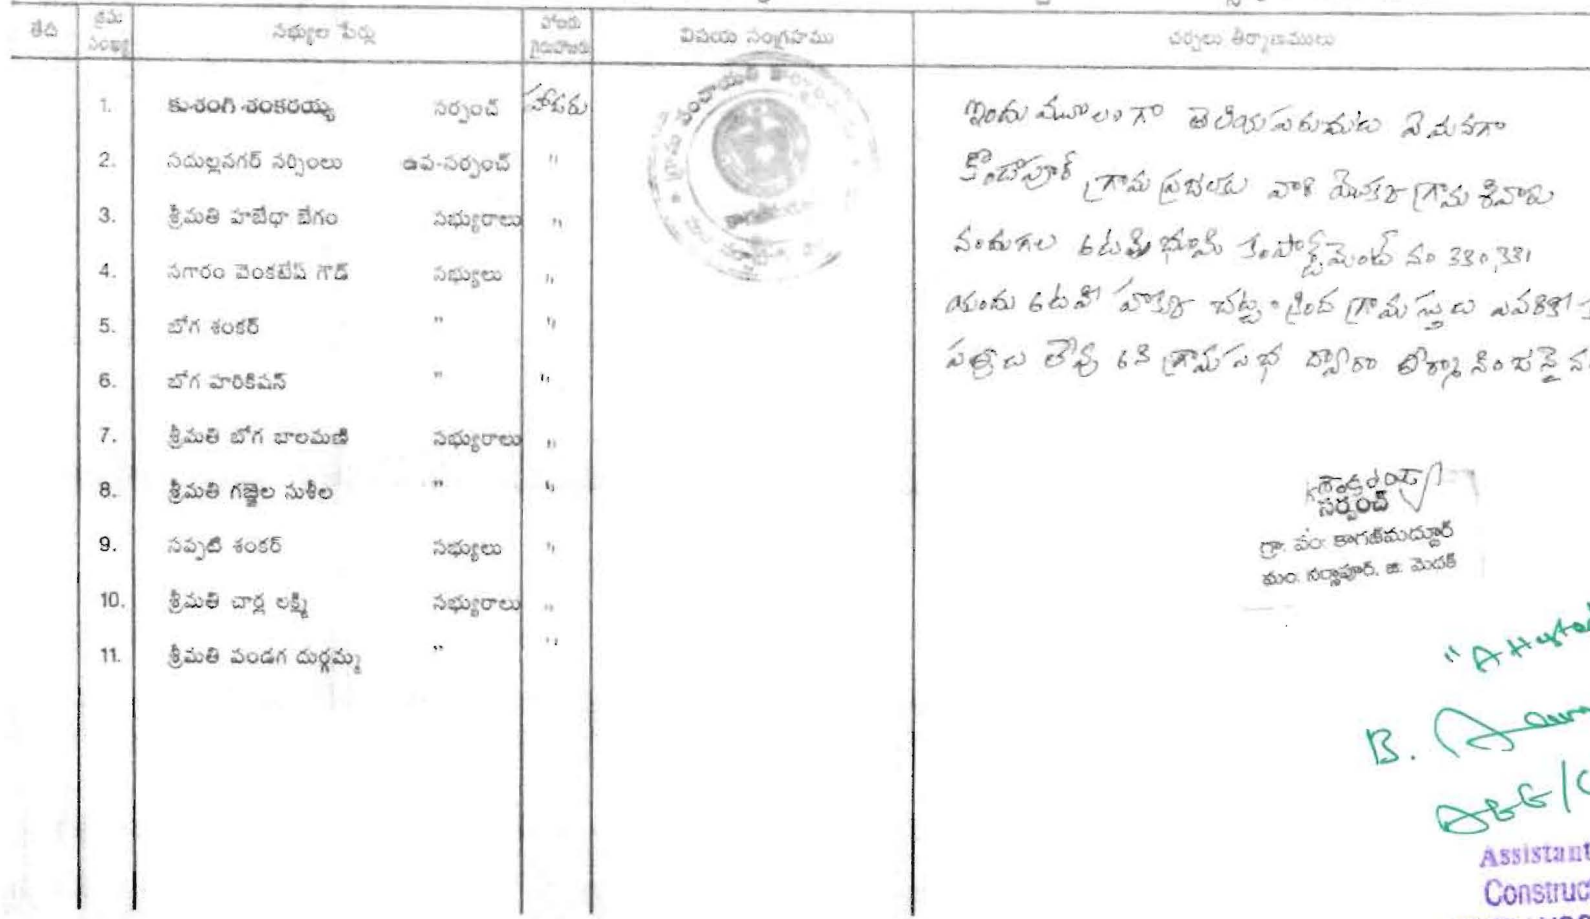 తేది క్రమ సంఖ్య సభ్యుల పేర్లు హాజరు గైరుహాజరు విషయ సంగ్రహము చర్చలు తీర్మాణములు
1. కుశంగి శంకరయ్య సర్పంచ్ హాజరు
2. సదుల్లనగర్ నర్సింలు ఉప-సర్పంచ్ "
3. శ్రీమతి హబేధా బేగం సభ్యురాలు "
4. సగారం వెంకటేష్ గౌడ్ సభ్యులు "
5. బోగ శంకర్ " "
6. బోగ హరికిషన్ " "
7. శ్రీమతి బోగ బాలమణి సభ్యురాలు "
8. శ్రీమతి గజ్జెల సుశీల " "
9. సప్పటి శంకర్ సభ్యులు "
10. శ్రీమతి చార్ల లక్ష్మి సభ్యురాలు "
11. శ్రీమతి పండగ దుర్గమ్మ " "
గ్రామ పంచాయతి
ఇందు మూలంగా తెలియపరుచుట ఏమనగా
కొండాపూర్ గ్రామ ప్రజలకు వారి యొక్క గ్రామ శివారు
నందుగల అటవీ భూమి కంపార్ట్‌మెంట్ నం 330,331
యందు అటవీ హక్కు చట్టం క్రింద గ్రామస్తులు ఎవరికీ
పత్రాలు లేవు అని గ్రామసభ ద్వారా తీర్మానించనైన
సర్పంచ్
గ్రా. పం. కాగజ్‌మద్దూర్
మం. నర్సాపూర్, జి. మెదక్
"Attested
B.
AEE/C
Assistant
Construc